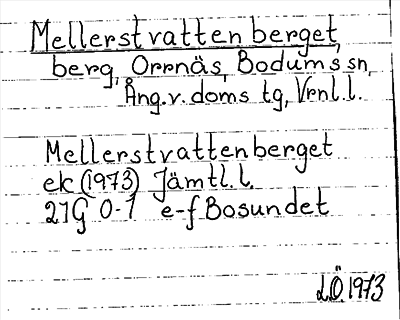 Mellerstvattenberget,
berg, Orrnäs, Bodums sn,
Ång.v. doms tg, Vrnl.l.
Mellerstvattenberget
ek (1973) Jämtl.l.
21G 0-1 e-f Bosundet
LÖ 1973